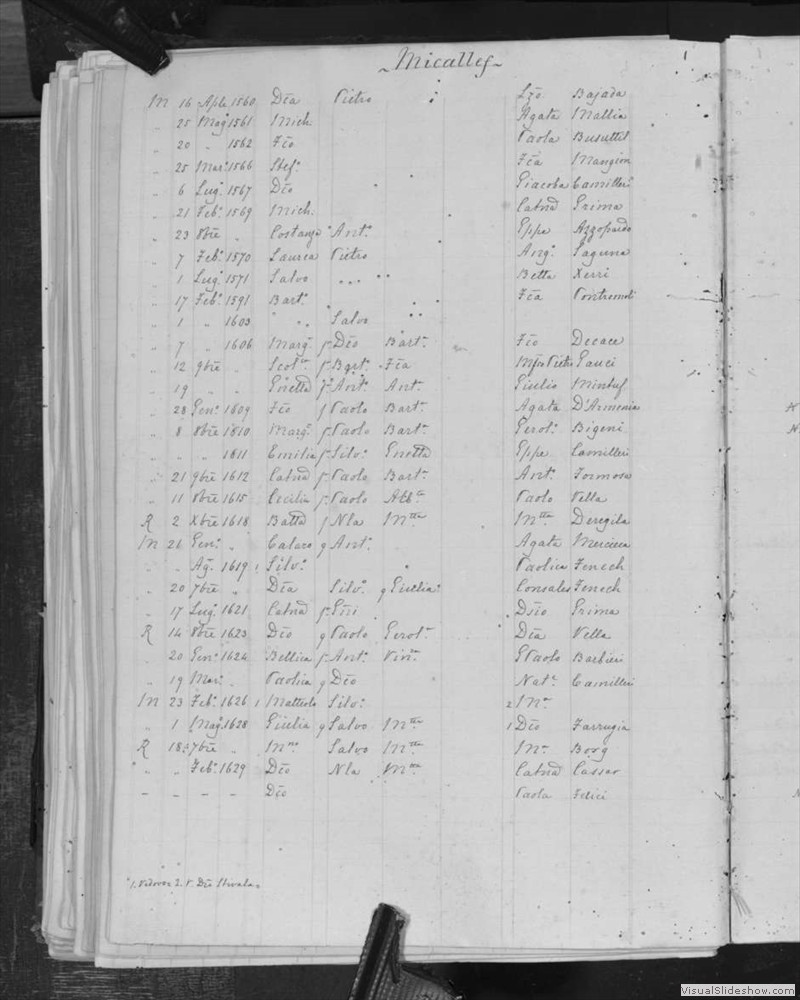 Micallef
M 16 Aple 1560 Dīa Pietro Lzō. Bajada
„ 25 Magº 1561 Mich. Agata Mallia
„ 20 „ 1562 Fīo Paola Busuttil
„ 25 Marº 1566 Stefº Fīa Mangion
„ 6 Lugº 1567 Dīo Giacoba Camilleri
„ 21 Febº 1569 Mich. Catnā Grima
„ 23 8bre „ Costanza Antº Gppa Azzopardo
„ 7 Febº 1570 Laurea Pietro Angº Laguna
„ 1 Lugº 1571 Salvo Betta Xerri
„ 17 Febº 1591 Bartº Fīa Pontremoli
„ 1 „ 1603 „ Salvo
„ 7 „ 1606 Margª Dīo Bartº Fīo Decace
„ 12 9bre „ Bartº Fīa Pietro Gauci
„ 19 „ „ Antº Antº Giulio
„ 28 Genº 1609 Fīo Paolo Bartº Agata D'Armenia
„ 8 8bre 1610 Margª Paolo Bartº Gerolº Bigeni
„ „ „ 1611 Emilia Silvº Gnetta Gppe Camilleri
„ 21 9bre 1612 Catnā Paolo Bartº Antº Formosa
„ 11 8bre 1615 Cecilia Paolo Paolo Vella
R 2 Xbre 1618 Batta Nla Mtta Mtta
M 26 Genº „ Calaro q Antº Agata Mercieca
„ „ Agº 1619 1 Silvº Paolica Fenech
„ 20 7bre „ Dīa Silvº q Giulia Consales Fenech
„ 17 Lugº 1621 Catnā Grima
R 14 8bre 1623 Dīo q Paolo Gerolº Dīa Vella
„ 20 Genº 1624 Bellica Antº Vincº Paolo Barbieri
„ 19 Marº „ Paolica q Dīo Natº Camilleri
M 23 Febº 1626 1 Matteola Silvº 2 Mª
„ 1 Magº 1628 Giulia q Salvo Mtta 1 Dīo Farrugia
R 18 7bre „ Salvo Mtta Mª Borg
„ „ Febº 1629 Dīo Nla Mtta Catnā Cassar
– – – – Dīo Paola Felici
1. Vedova 2. V. Dīo
VisualSlideshow.com